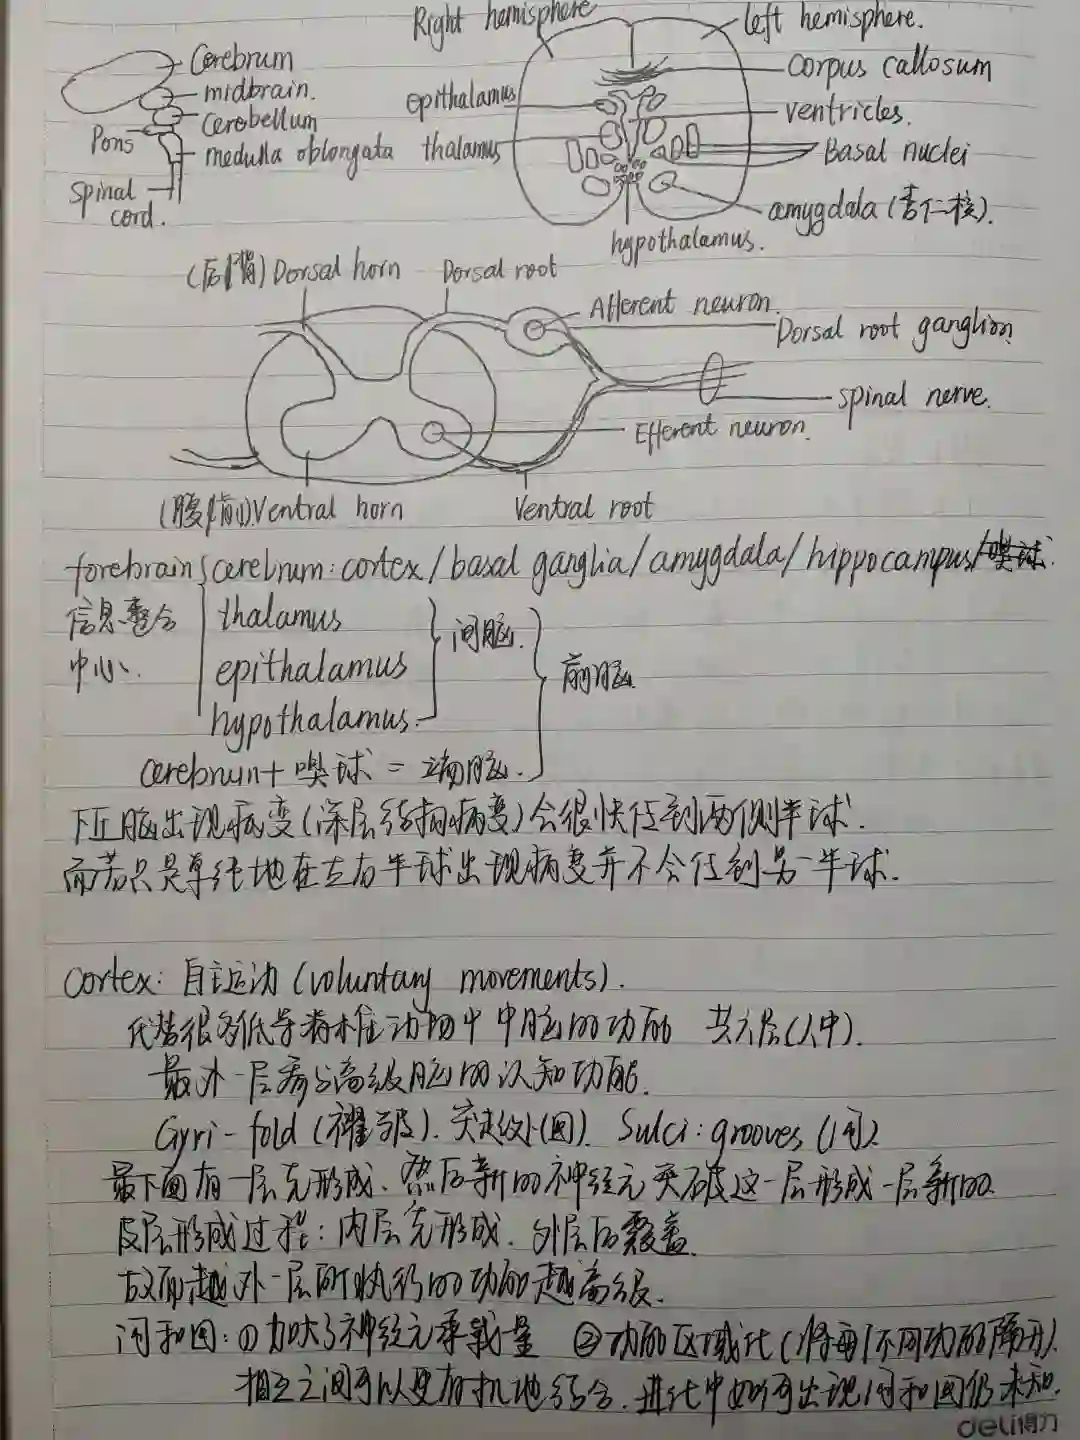 Right hemisphere
left hemisphere.
Cerebrum
midbrain.
Cerebellum
Pons
medulla oblongata
spinal cord.
corpus callosum
epithalamus
ventricles.
thalamus
Basal nuclei
amygdala (杏仁核).
hypothalamus.
(后/背) Dorsal horn
Dorsal root
Afferent neuron.
Dorsal root ganglion
spinal nerve.
Efferent neuron.
(腹/前) Ventral horn
Ventral root
forebrain { cerebrum: cortex/basal ganglia/amygdala/hippocampus/嗅球.
信息整合 thalamus } 间脑.
中心、 epithalamus } 前脑
hypothalamus.
cerebrum + 嗅球 = 端脑.
下丘脑出现病变(深层结构病变)会很快传到两侧半球.
而若只是单纯地在左右半球出现病变并不会传到另一半球.
Cortex: 自主运动 (voluntary movements).
代替很多低等脊椎动物中中脑的功能 共六层(人中).
最外一层参与高级脑的认知功能.
Gyri-fold (褶皱). 突起纹外(回). Sulci: grooves (沟).
最下面有一层先形成、然后新的神经元突破这一层形成一层新的.
皮层形成过程: 内层先形成、外层后覆盖.
故而越外一层所执行的功能越高级.
沟和回: ①加大了神经元承载量 ②功能区域化 (将每个不同功能隔开).
相互之间可以更有机地结合. 进化中如何出现沟和回仍未知.
deli得力